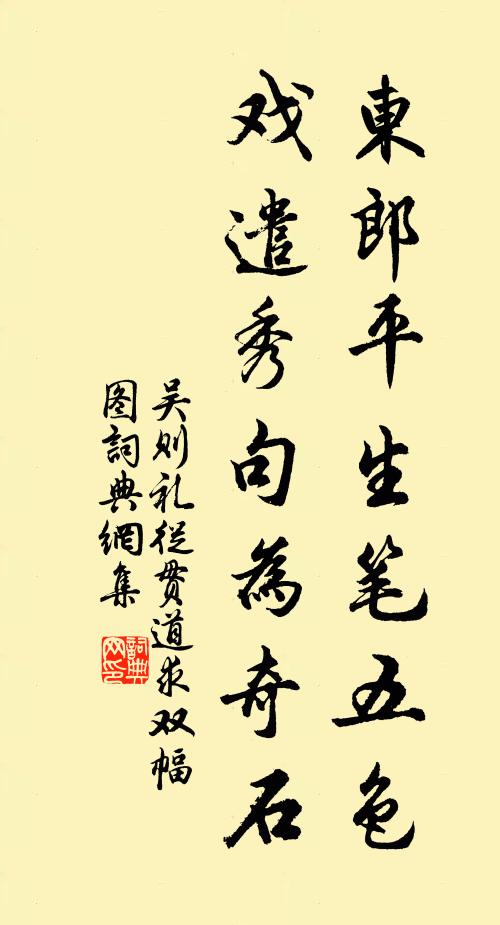 東郎平生笔五色
戏遣秀句為奇石
吴则礼從贯道求双幅
图詞典網集
詞典
网印